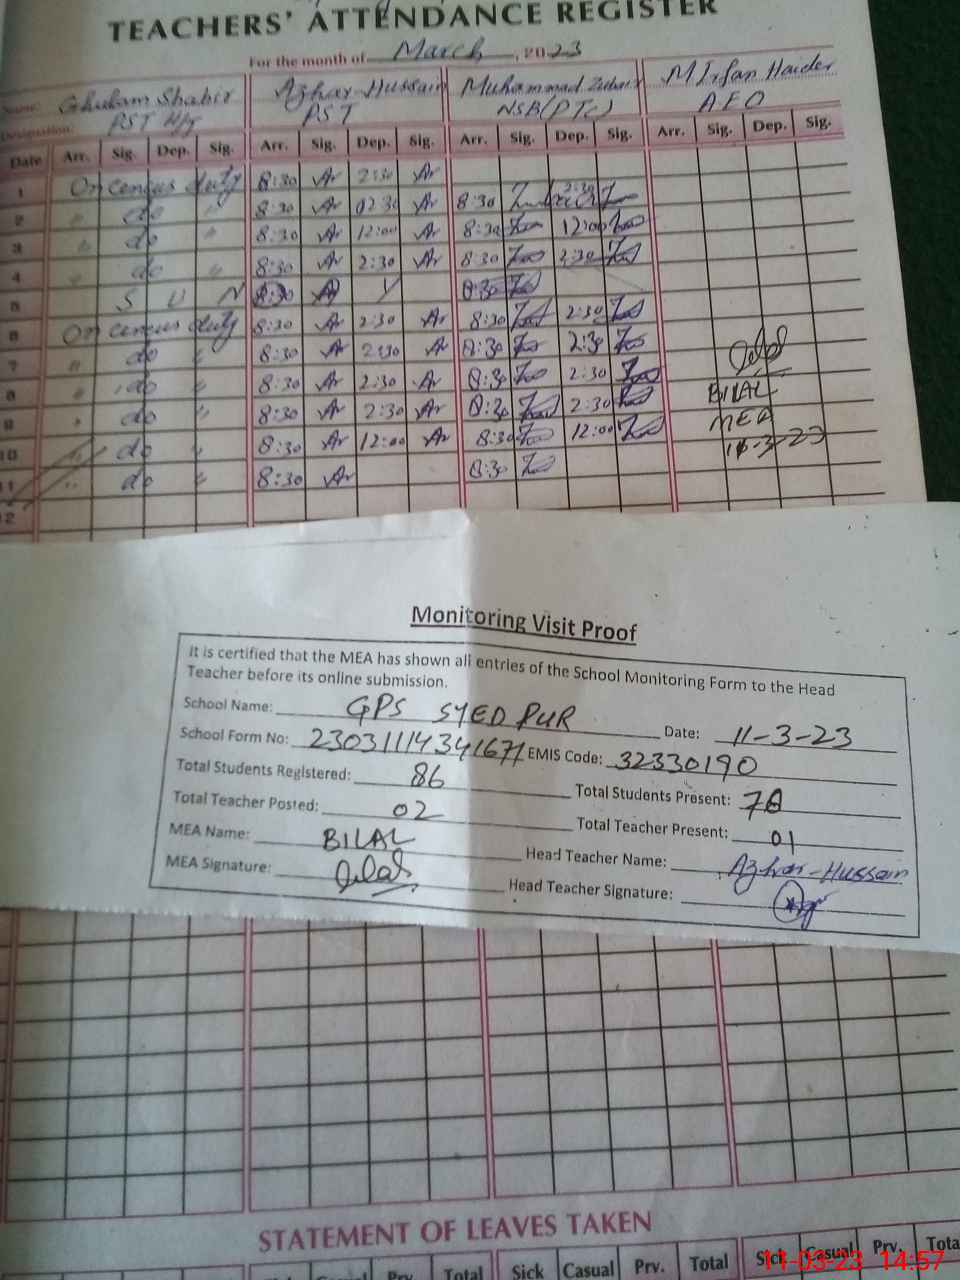 TEACHERS' ATTENDANCE REGISTER
For the month of March, 2023
Name: Ghulam Shabir Azhar Hussain Muhammad Zubair M Irfan Haider
Designation: PST H/T PST NSB(PTC) AEO
Date Arr. Sig. Dep. Sig. Arr. Sig. Dep. Sig. Arr. Sig. Dep. Sig. Arr. Sig. Dep. Sig.
1 On census duty 8:30 Ar 2:30 Ar
2 " do " 8:30 Ar 02:30 Ar 8:30 2:30
3 " do " 8:30 Ar 12:00 Ar 8:30 12:00
4 " do " 8:30 Ar 2:30 Ar 8:30 2:30
5 S U N 8:30 8:30
6 On census duty 8:30 Ar 2:30 Ar 8:30 2:30
7 " do " 8:30 Ar 2:30 Ar 8:30 2:30
8 " do " 8:30 Ar 2:30 Ar 8:30 2:30 BILAL
9 " do " 8:30 Ar 2:30 Ar 8:30 2:30 MEA
10 " do " 8:30 Ar 12:00 Ar 8:30 12:00 11-3-23
11 " do " 8:30 Ar 8:30
12
Monitoring Visit Proof
It is certified that the MEA has shown all entries of the School Monitoring Form to the Head
Teacher before its online submission.
School Name: GPS SYED PUR Date: 11-3-23
School Form No: 23031114341671 EMIS Code: 32330190
Total Students Registered: 86 Total Students Present: 78
Total Teacher Posted: 02 Total Teacher Present: 01
MEA Name: BILAL Head Teacher Name: Azhar Hussain
MEA Signature: Bilal Head Teacher Signature:
STATEMENT OF LEAVES TAKEN
Sick Casual Prv. Total Sick Casual Prv. Total
11-03-23 14:57